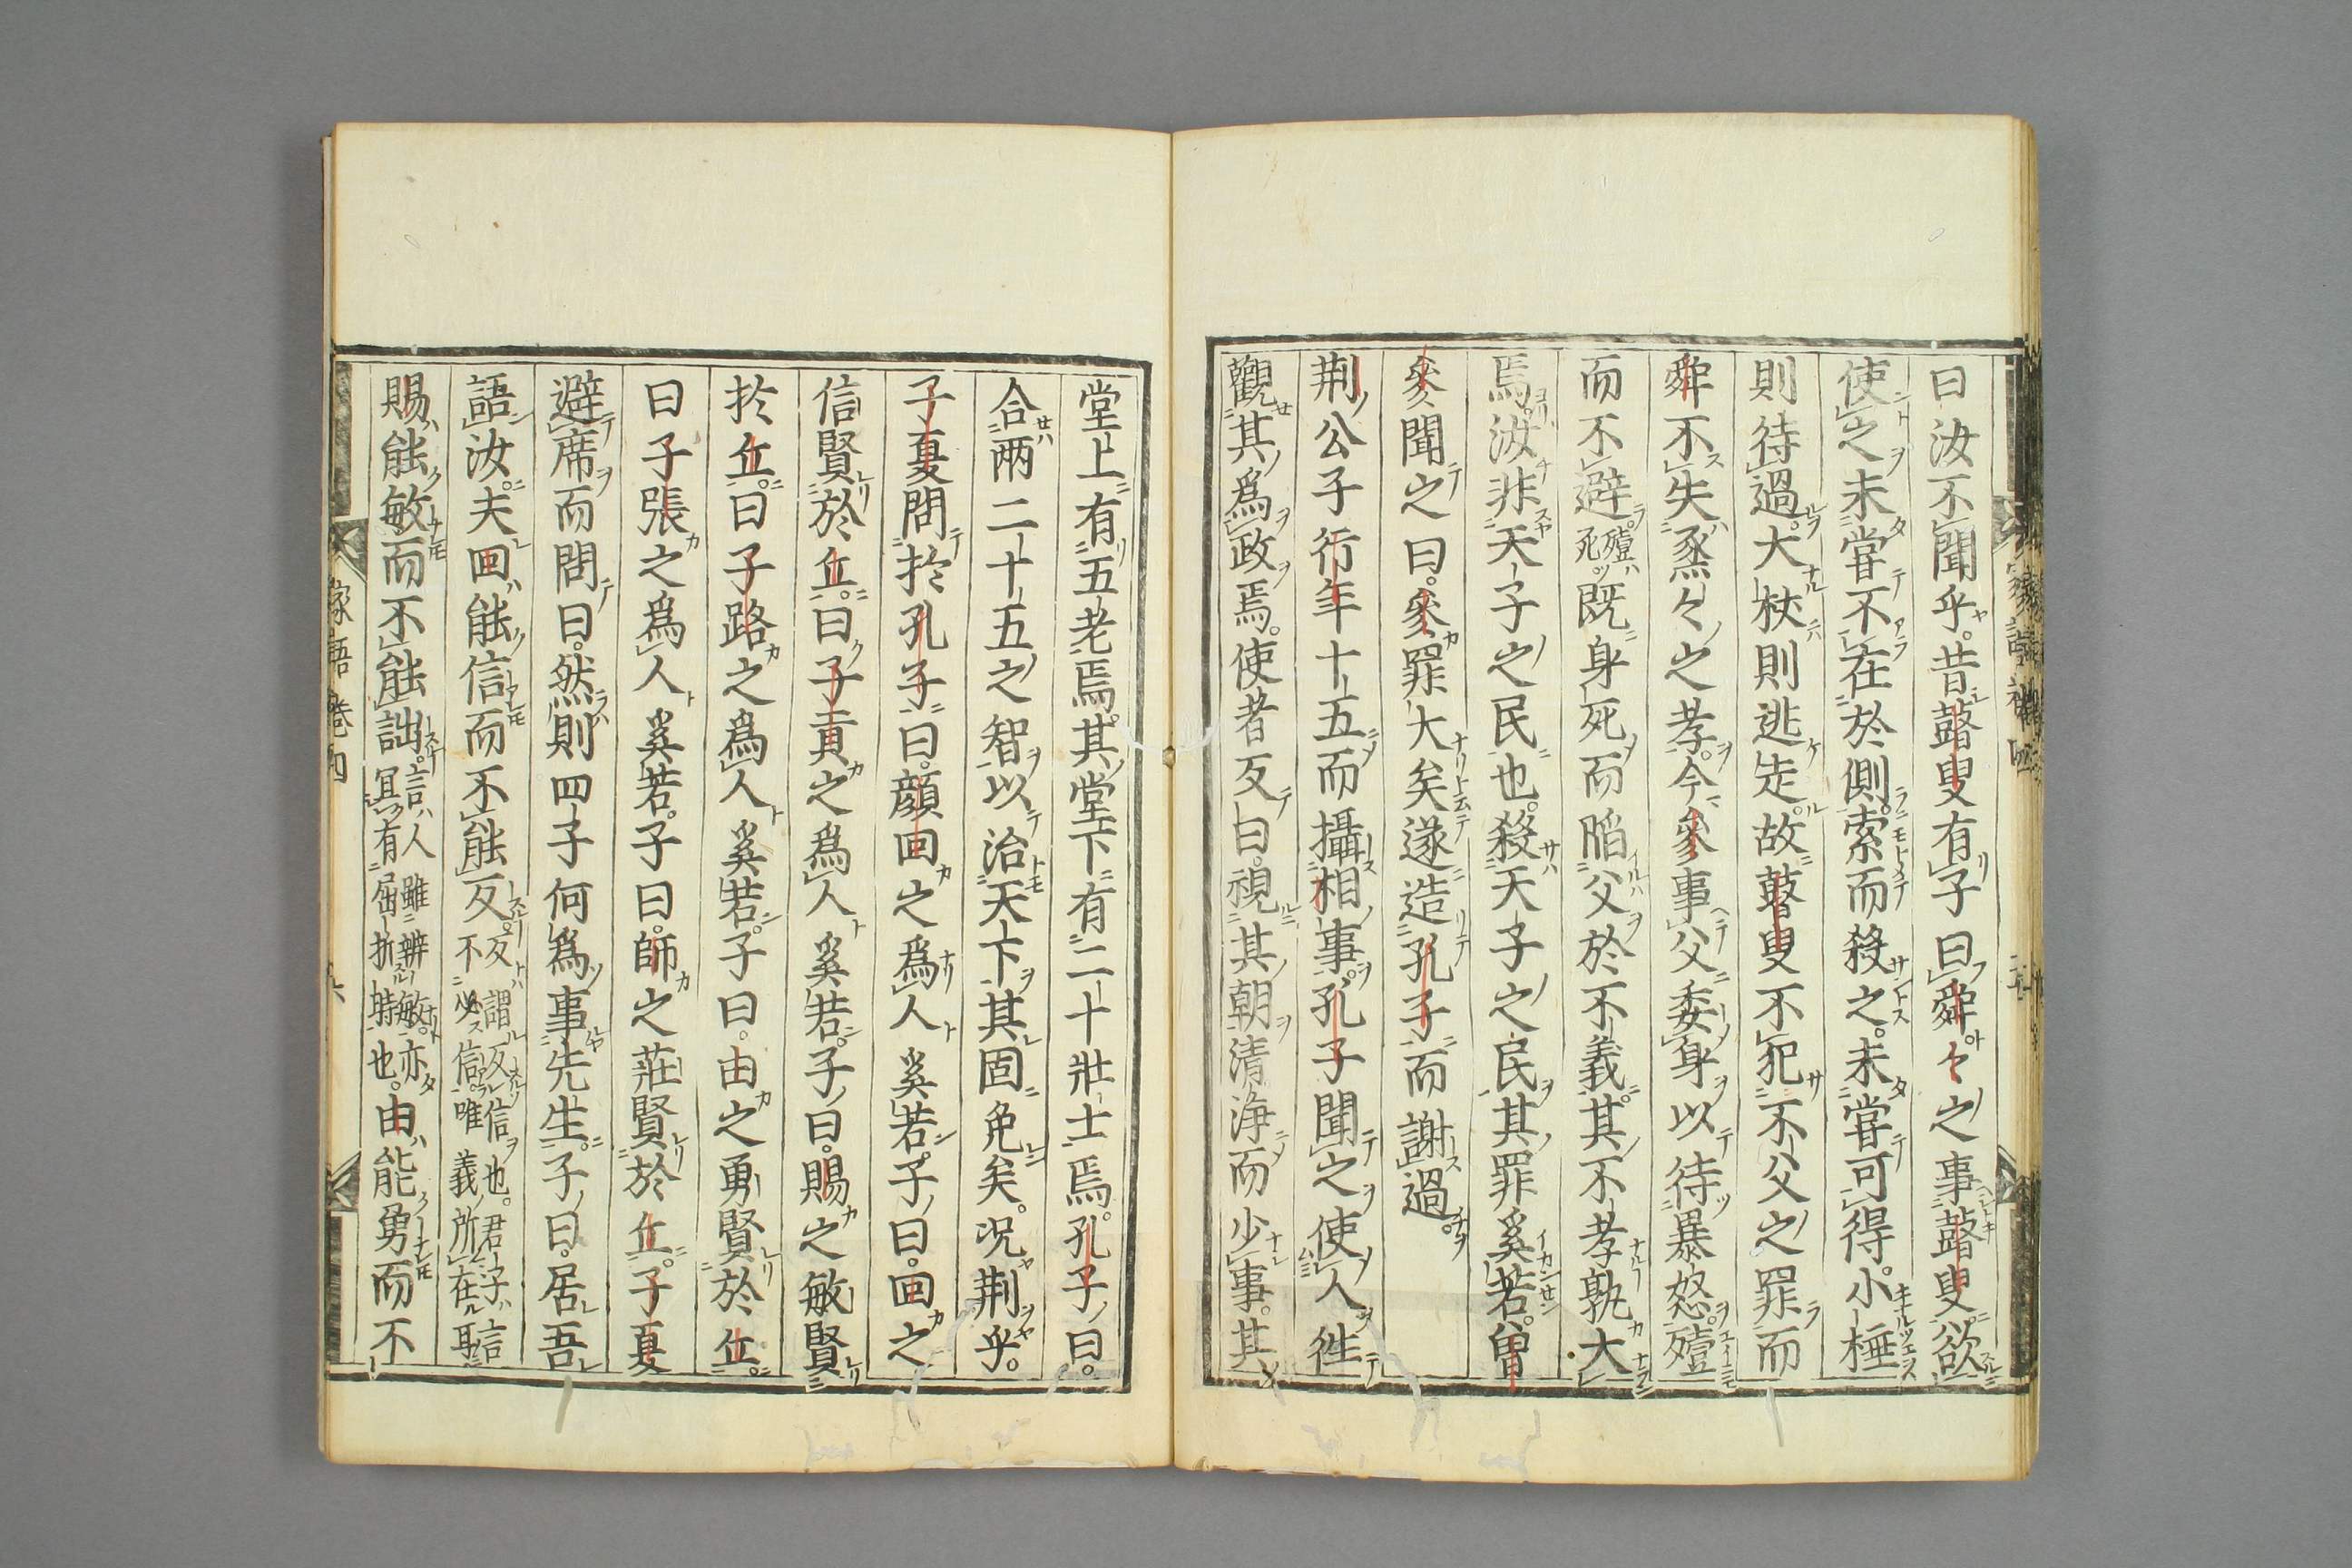 曰汝不聞乎。昔瞽叟有子曰舜々之事瞽叟欲
使之未甞不在於側。索而殺之。未甞可得。小棰
則待過。大杖則逃走。故瞽叟不犯不父之罪而
舜不失烝々之孝。今參事父委身以待暴怒。殪
而不避。殪死。既身死而陷父於不義。其不孝孰大
焉。汝非天子之民也。殺天子之民其罪奚若。曽
參聞之曰。參罪大矣遂造孔子而謝過。
荆公子行年十五而攝相事。孔子聞之使人徃
觀其為政焉。使者反曰。視其朝清淨而少事。其
堂上有五老焉。其堂下有二十壯士焉。孔子曰。
合兩二十五之智以治天下其固免矣。况荆乎。
子夏問於孔子曰。顔回之為人奚若。子曰。回之
信賢於丘。曰子貢之為人奚若。子曰。賜之敏賢
於丘。曰子路之為人奚若。子曰。由之勇賢於丘。
曰子張之為人奚若。子曰。師之莊賢於丘。子夏
避席而問曰。然則四子何為事先生。子曰。居吾
語汝。夫回能信而不能反反謂反信也。君子言不必信。唯義所在耳
賜能敏而不能詘。言人雖辨敏。亦冝有屈折時也。由能勇而不
家語卷四